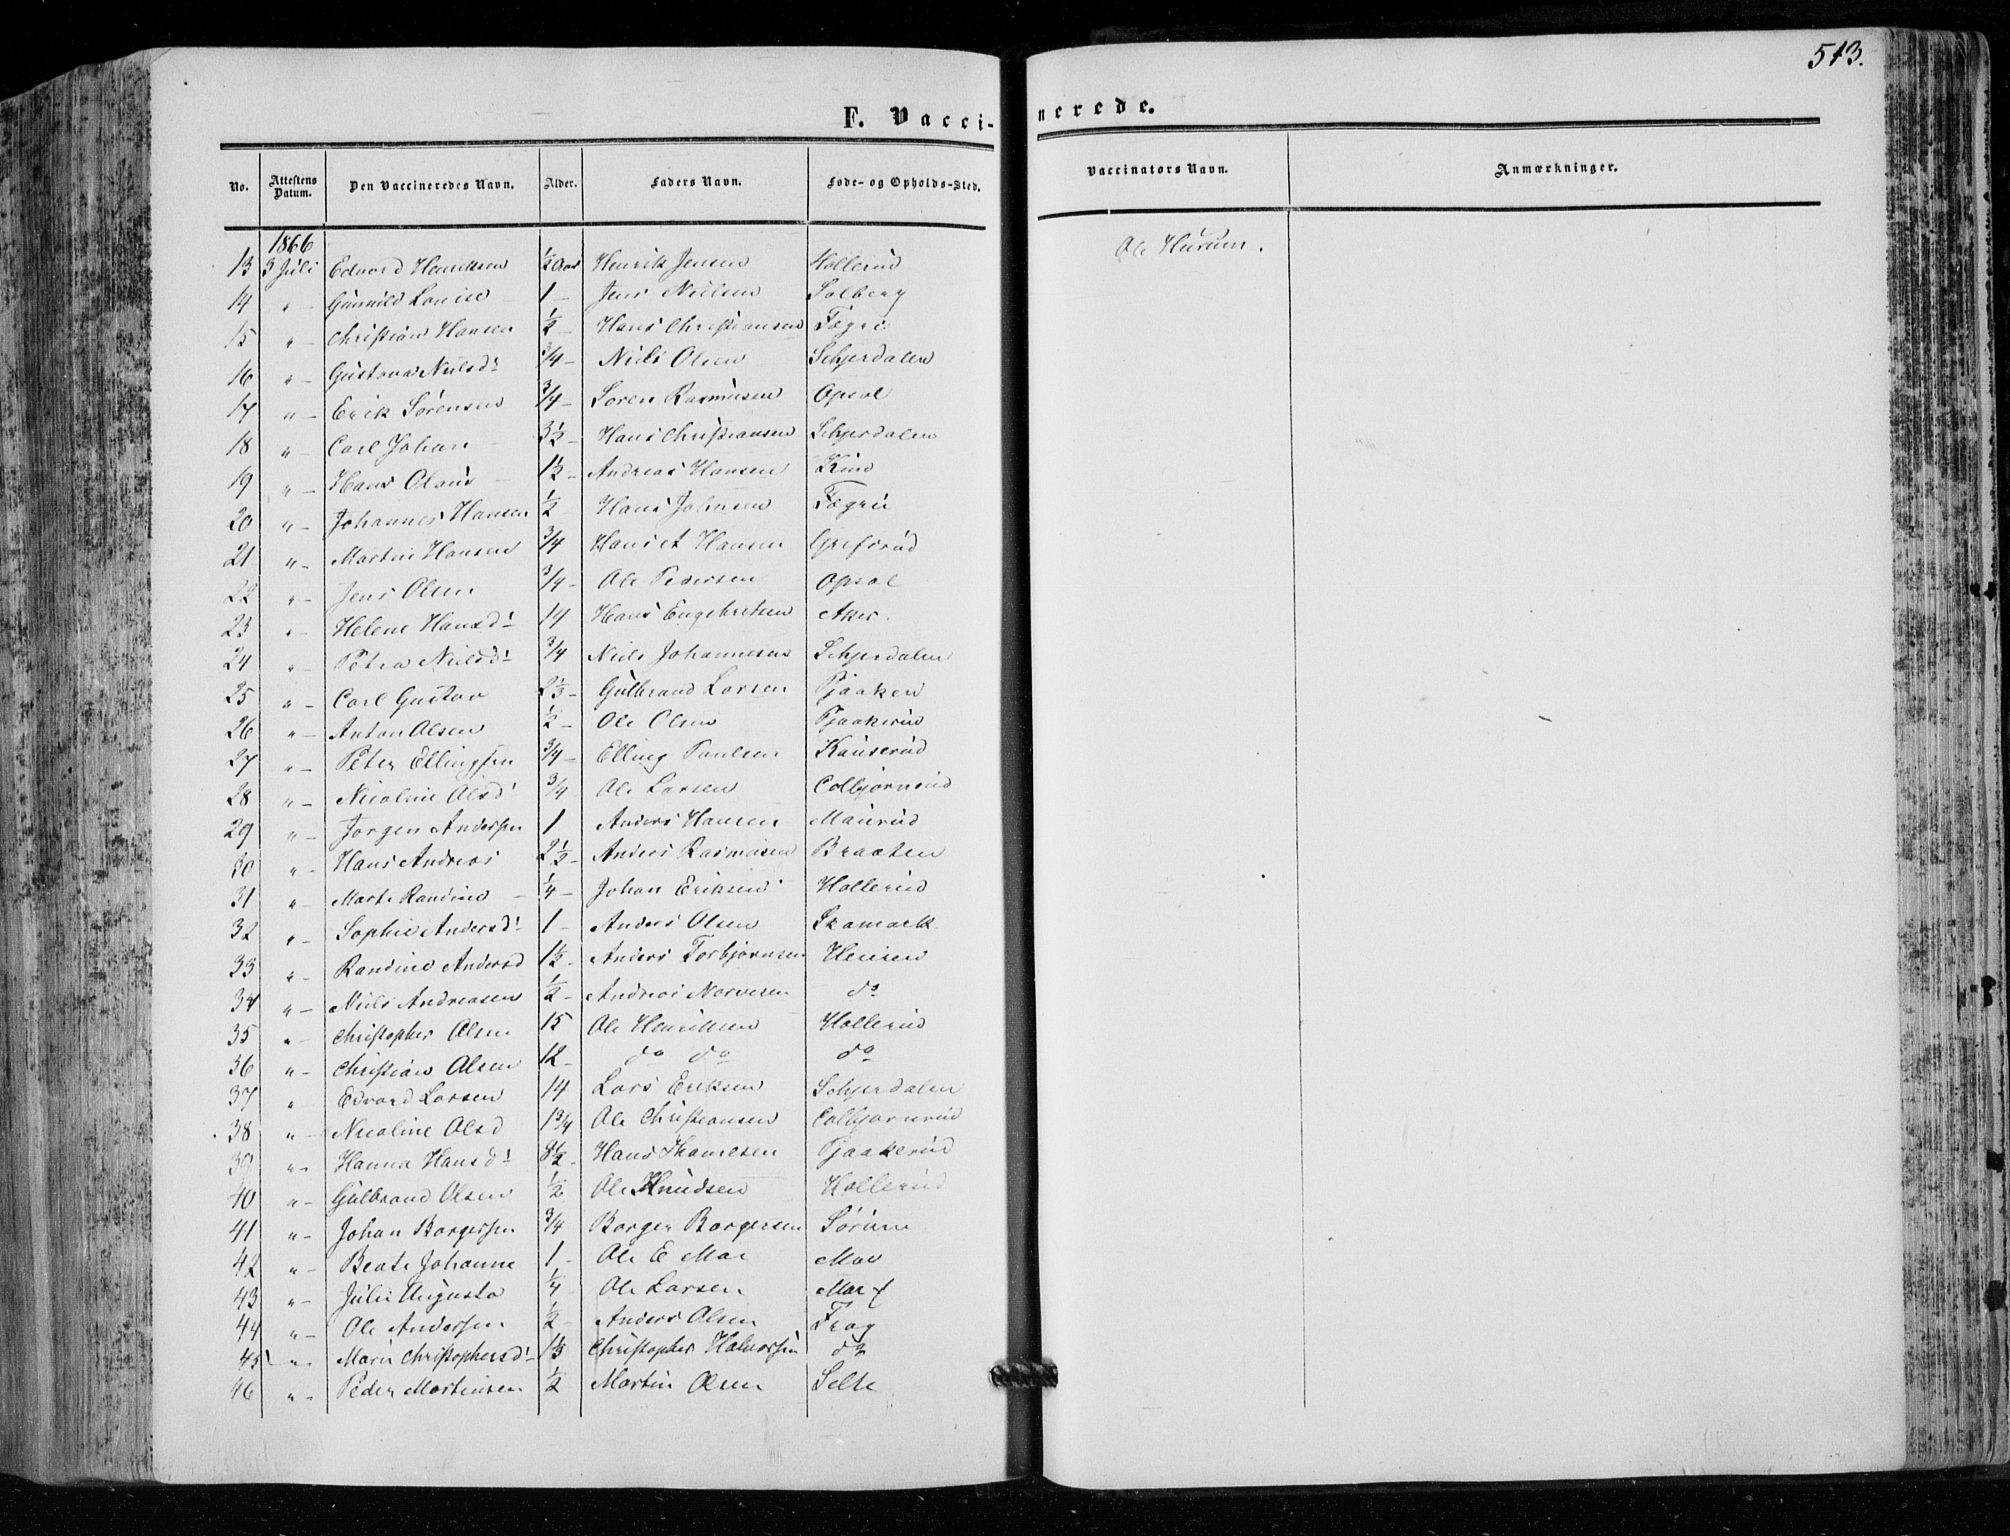 513.
F. Vaccinerede.
No. Attestens Datum. Den Vaccineredes Navn. Alder. Faders Navn. Føde- og Opholds-Sted. Vaccinators Navn. Anmærkninger.
1866
13 3 Juli Edvard Henriksen ½ Aar Henrik Jensen Hollerud Ole Hurum.
14 " - Gunnild Louise 1 - Jens Nielsen Solberg
15 " - Christian Hansen ½ - Hans Christiansen Fegri
16 " - Gustava Nielsd: ¾ - Niels Olsen Schjerdalen
17 " - Erik Sørensen ¾ - Søren Rasmusen Opsal
18 " - Carl Johan - 3½ - Hans Christiansen Schjerdalen
19 " - Hans Olaus - 1½ - Andreas Hansen Kind
20 " - Johannes Hansen ½ Hans Johnsen Fegri
21 " - Martin Hansen ¾ Hans A Hansen Grefsrud
22 " - Jens Olsen ¾ - Ole Pedersen Opsal
23 " - Helene Hansd: 14 Hans Engebretsen Aker.
24 " - Petra Nielsd: ¾ Niels Johannesen Schjerdalen
25 " - Carl Gustav 2½ - Gulbrand Larsen Pjaaken
26 " - Anton Olsen ½ - Ole Olsen Pjaakerud
27 " - Peter Ellingsen ¾ - Elling Paulsen Kauserud
28 " - Nicoline Olsd: ¾ Ole Larsen Colbjørnrud
29 " - Jørgen Andersen 1 Anders Hansen Maurud
30 " - Hans Andreas 2½ - Anders Rasmusen Braaten
31 " - Marte Randine - ¼ - Johan Eriksen Hollerud
32 " - Sophie Andersd: 1 - Anders Olsen Skamark
33 " - Randine Andersd 1½ - Anders Torbjørnsen Hensen
34 " - Niels Andreasen ½ - Andreas Narvesen do
35 " - Christopher Olsen 15 Ole Henriksen Hollerud
36 " - Christian Olsen 12 - do do do
37 " - Edvard Larsen 14 Lars Eriksen Schjerdalen
38 " - Nicoline Olsd 1¾ Ole Christiansen Colbjørnrud
39 " - Hanna Hansd: 8½ - Hans Thomesen Pjaakerud
40 " - Gulbrand Olsen ½ Ole Knudsen Hollerud
41 " - Johan Borgersen ¾ Borger Borgersen Sørum
42 " - Beate Johanne 1 - Ole E Moe Moe
43 " - Julie Augusta ¼ Ole Larsen
44 " - Ole Andersen ½ - Anders Olsen Frog
45 " - Marie Christophersd: 1½ Christopher Halvorsen do
46 " - Peder Martinsen ½ Martin Olsen Selte